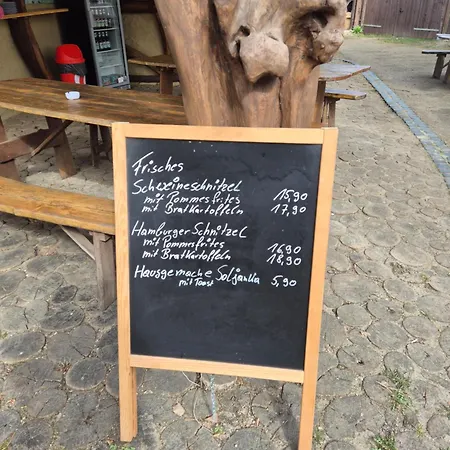 Frisches
Schweineschnitzel
mit Pommesfrites 15,90
mit Bratkartoffeln 17,90
Hamburger-Schnitzel
mit Pommesfrites 16,90
mit Bratkartoffeln 18,90
Hausgemachte Soljanka 5,90
mit Toast